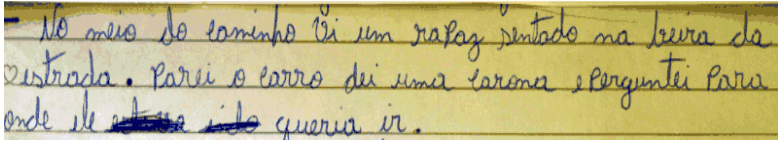 - No meio do caminho vi um rapaz sentado na beira da
estrada. Parei o carro dei uma carona e Perguntei Para
onde ele estava indo queria ir.